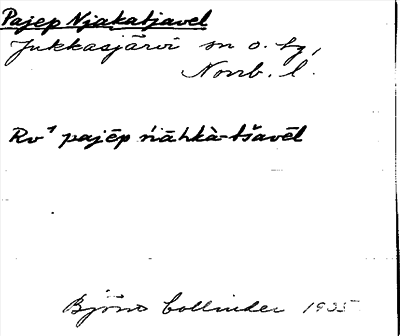 Pajep Njakatjavel
Jukkasjärvi sn o. tg,
Norrb. l.
Rv¹ pajēp ńāhkà-tšavēl
Björn Collinder 1935